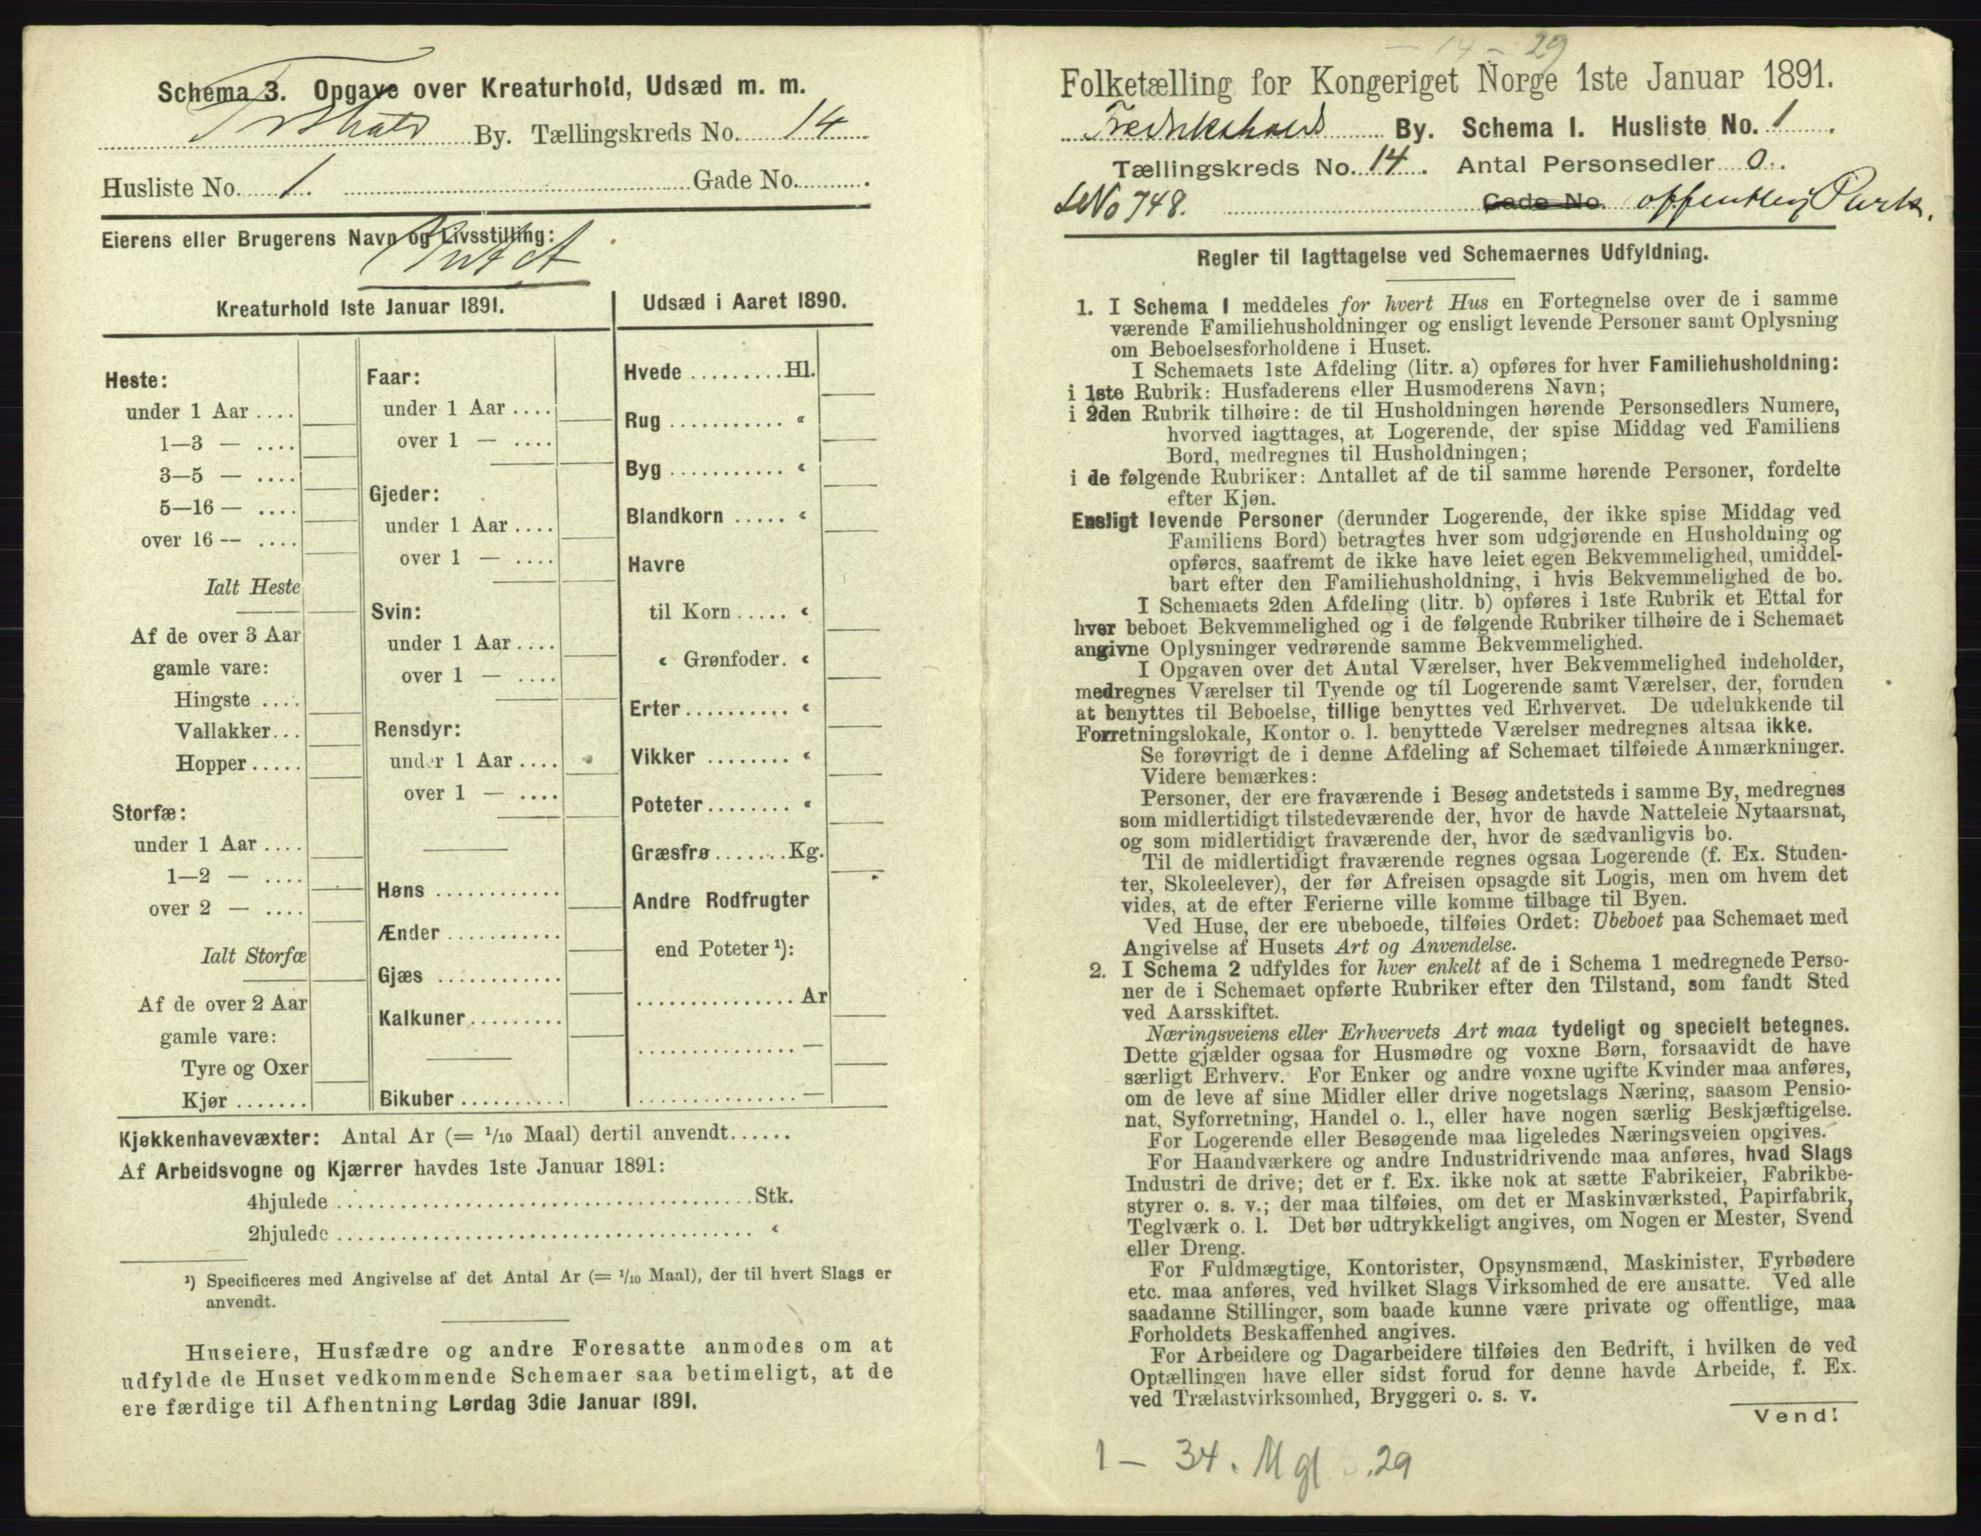 Schema 3. Opgave over Kreaturhold, Udsæd m. m.
By. Tællingskreds No. 14
Husliste No. 1. Gade No.
Eierens eller Brugerens Navn og Livsstilling:
Intet
Kreaturhold 1ste Januar 1891.
Heste:
under 1 Aar ....
1—3 — ....
3—5 — ....
5—16 — ....
over 16 — ....
Ialt Heste
Af de over 3 Aar
gamle vare:
Hingste ....
Vallakker...
Hopper.....
Storfæ:
under 1 Aar ....
1—2 — ....
over 2 — ....
Ialt Storfæ
Af de over 2 Aar
gamle vare:
Tyre og Oxer
Kjør .......
Faar:
under 1 Aar ....
over 1 — ....
Gjeder:
under 1 Aar ....
over 1 — ....
Svin:
under 1 Aar ....
over 1 — ....
Rensdyr:
under 1 Aar ....
over 1 — ....
Høns ............
Ænder ...........
Gjæs ............
Kalkuner.........
Bikuber ..........
Udsæd i Aaret 1890.
Hvede .........Hl.
Rug ........... «
Byg ........... «
Blandkorn ..... «
Havre
til Korn ..... «
« Grønfoder. «
Erter .......... «
Vikker ........ «
Poteter........ «
Græsfrø .......Kg.
Andre Rodfrugter
end Poteter ¹):
............... Ar
............... —
............... —
Kjøkkenhavevæxter: Antal Ar (= 1/10 Maal) dertil anvendt......
Af Arbeidsvogne og Kjærrer havdes 1ste Januar 1891:
4hjulede ........................................ Stk.
2hjulede ........................................ «
¹) Specificeres med Angivelse af det Antal Ar (= 1/10 Maal), der til hvert Slags er
anvendt.
Huseiere, Husfædre og andre Foresatte anmodes om at
udfylde de Huset vedkommende Schemaer saa betimeligt, at de
ere færdige til Afhentning Lørdag 3die Januar 1891.
— 14 — 29
Folketælling for Kongeriget Norge 1ste Januar 1891.
Fredrikshald By. Schema I. Husliste No. 1.
Tællingskreds No. 14. Antal Personsedler 0.
No 748. Gade No. offentlig Park.
Regler til Iagttagelse ved Schemaernes Udfyldning.
1. I Schema 1 meddeles for hvert Hus en Fortegnelse over de i samme
værende Familiehusholdninger og ensligt levende Personer samt Oplysning
om Beboelsesforholdene i Huset.
I Schemaets 1ste Afdeling (litr. a) opføres for hver Familiehusholdning:
i 1ste Rubrik: Husfaderens eller Husmoderens Navn;
i 2den Rubrik tilhøire: de til Husholdningen hørende Personsedlers Numere,
hvorved iagttages, at Logerende, der spise Middag ved Familiens
Bord, medregnes til Husholdningen;
i de følgende Rubriker: Antallet af de til samme hørende Personer, fordelte
efter Kjøn.
Ensligt levende Personer (derunder Logerende, der ikke spise Middag ved
Familiens Bord) betragtes hver som udgjørende en Husholdning og
opføres, saafremt de ikke have leiet egen Bekvemmelighed, umiddel-
bart efter den Familiehusholdning, i hvis Bekvemmelighed de bo.
I Schemaets 2den Afdeling (litr. b) opføres i 1ste Rubrik et Ettal for
hver beboet Bekvemmelighed og i de følgende Rubriker tilhøire de i Schemaet
angivne Oplysninger vedrørende samme Bekvemmelighed.
I Opgaven over det Antal Værelser, hver Bekvemmelighed indeholder,
medregnes Værelser til Tyende og til Logerende samt Værelser, der, foruden
at benyttes til Beboelse, tillige benyttes ved Erhvervet. De udelukkende til
Forretningslokale, Kontor o. l. benyttede Værelser medregnes altsaa ikke.
Se forøvrigt de i denne Afdeling af Schemaet tilføiede Anmærkninger.
Videre bemærkes:
Personer, der ere fraværende i Besøg andetsteds i samme By, medregnes
som midlertidigt tilstedeværende der, hvor de havde Natteleie Nytaarsnat,
og som midlertidigt fraværende der, hvor de sædvanligvis bo.
Til de midlertidigt fraværende regnes ogsaa Logerende (f. Ex. Studen-
ter, Skoleelever), der før Afreisen opsagde sit Logis, men om hvem det
vides, at de efter Ferierne ville komme tilbage til Byen.
Ved Huse, der ere ubeboede, tilføies Ordet: Ubeboet paa Schemaet med
Angivelse af Husets Art og Anvendelse.
2. I Schema 2 udfyldes for hver enkelt af de i Schema 1 medregnede Perso-
ner de i Schemaet opførte Rubriker efter den Tilstand, som fandt Sted
ved Aarsskiftet.
Næringsveiens eller Erhvervets Art maa tydeligt og specielt betegnes.
Dette gjælder ogsaa for Husmødre og voxne Børn, forsaavidt de have
særligt Erhverv. For Enker og andre voxne ugifte Kvinder maa anføres,
om de leve af sine Midler eller drive nogetslags Næring, saasom Pensio-
nat, Syforretning, Handel o. l., eller have nogen særlig Beskjæftigelse.
For Logerende eller Besøgende maa ligeledes Næringsveien opgives.
For Haandværkere og andre Industridrivende maa anføres, hvad Slags
Industri de drive; det er f. Ex. ikke nok at sætte Fabrikeier, Fabrikbe-
styrer o. s. v.; der maa tilføies, om det er Maskinværksted, Papirfabrik,
Teglværk o. l. Det bør udtrykkeligt angives, om Nogen er Mester, Svend
eller Dreng.
For Fuldmægtige, Kontorister, Opsynsmænd, Maskinister, Fyrbødere
etc. maa anføres, ved hvilket Slags Virksomhed de ere ansatte. Ved alle
saadanne Stillinger, som baade kunne være private og offentlige, maa
Forholdets Beskaffenhed angives.
For Arbeidere og Dagarbeidere tilføies den Bedrift, i hvilken de ved
Optællingen have eller sidst forud for denne havde Arbeide, f. Ex.
ved Trælastvirksomhed, Bryggeri o. s. v.
Vend!
1 — 34. Mgl. 29